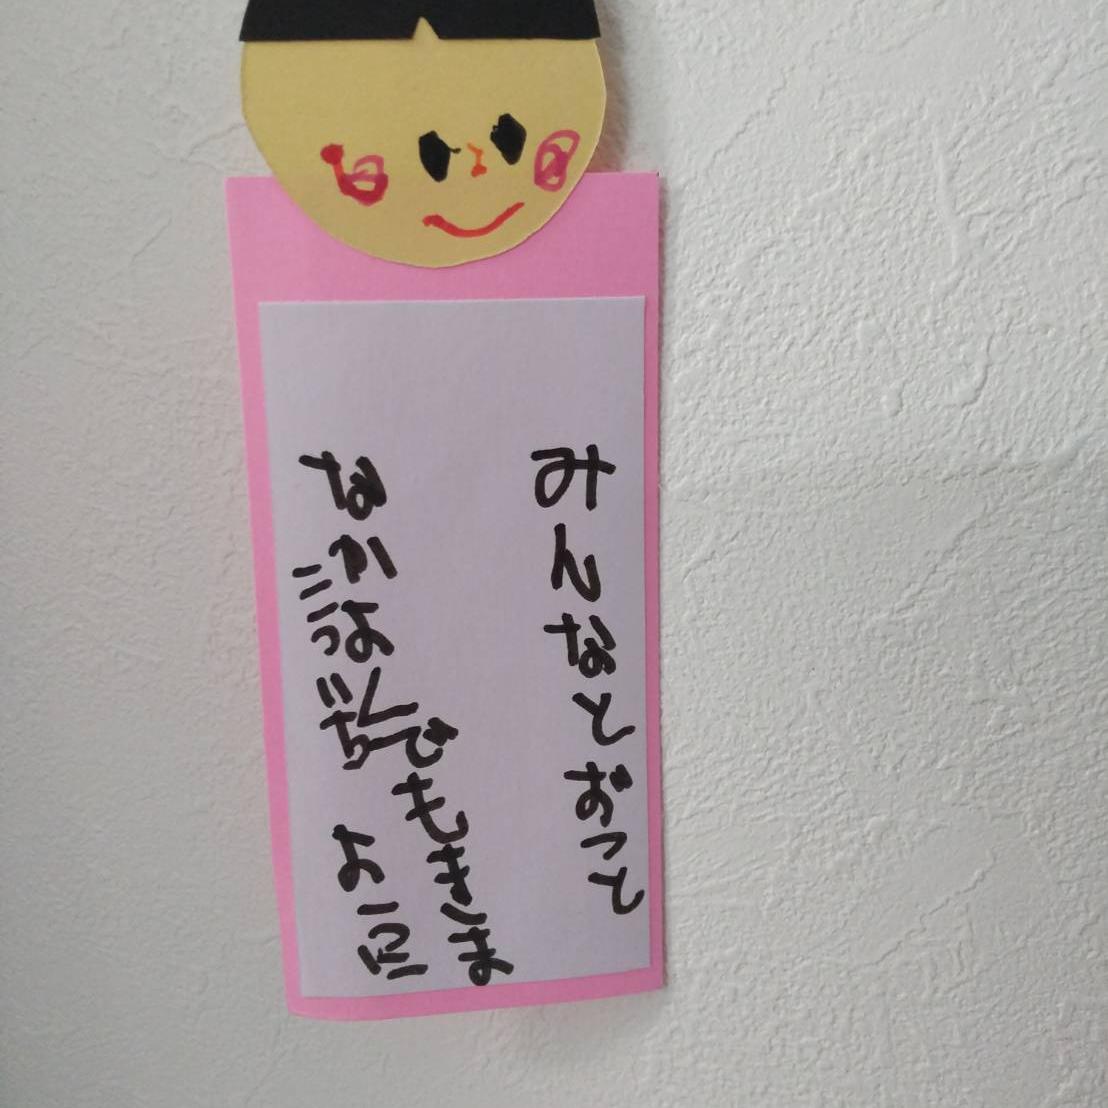 みんなとずっと
なかよくでもきま
ように